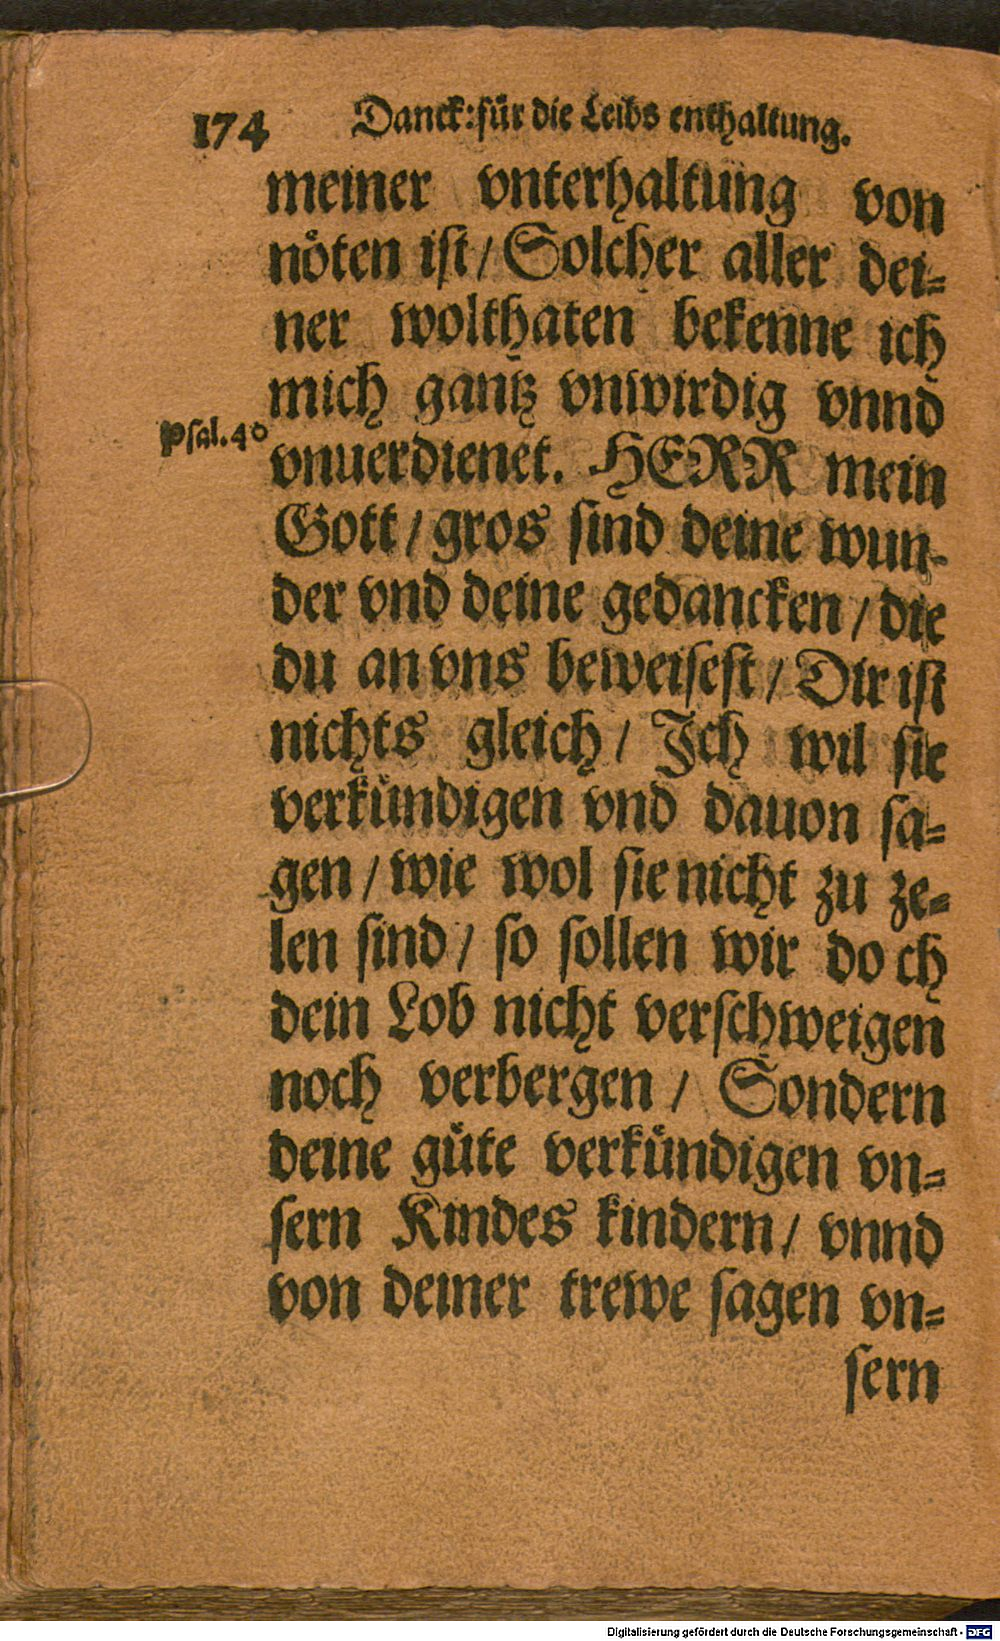 174 Danck: für die Leibs enthaltung.
meiner vnterhaltung von
nöten ist / Solcher aller dei-
ner wolthaten bekenne ich
mich gantz vnwirdig vnnd
Psal. 40
vnuerdienet. HERR mein
Gott / gros sind deine wun-
der vnd deine gedancken / die
du an vns beweisest / Dir ist
nichts gleich / Ich wil sie
verkündigen vnd dauon sa-
gen / wie wol sie nicht zu ze-
len sind / so sollen wir do ch
dein Lob nicht verschweigen
noch verbergen / Sondern
deine güte verkündigen vn-
sern Kindes kindern / vnnd
von deiner trewe sagen vn-
sern
Digitalisierung gefördert durch die Deutsche Forschungsgemeinschaft - DFG